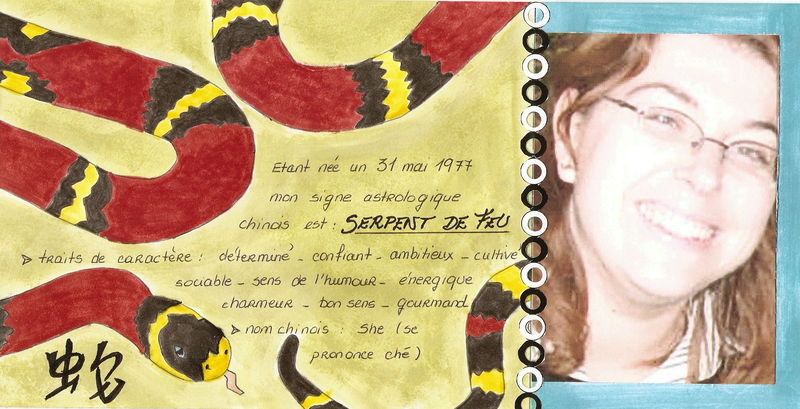 Etant née un 31 mai 1977
mon signe astrologique
chinois est : SERPENT DE FEU
traits de caractère : déterminé - confiant - ambitieux - cultivé
sociable - sens de l'humour - énergique
charmeur - bon sens - gourmand
nom chinois : She (se
prononce ché)
蛇